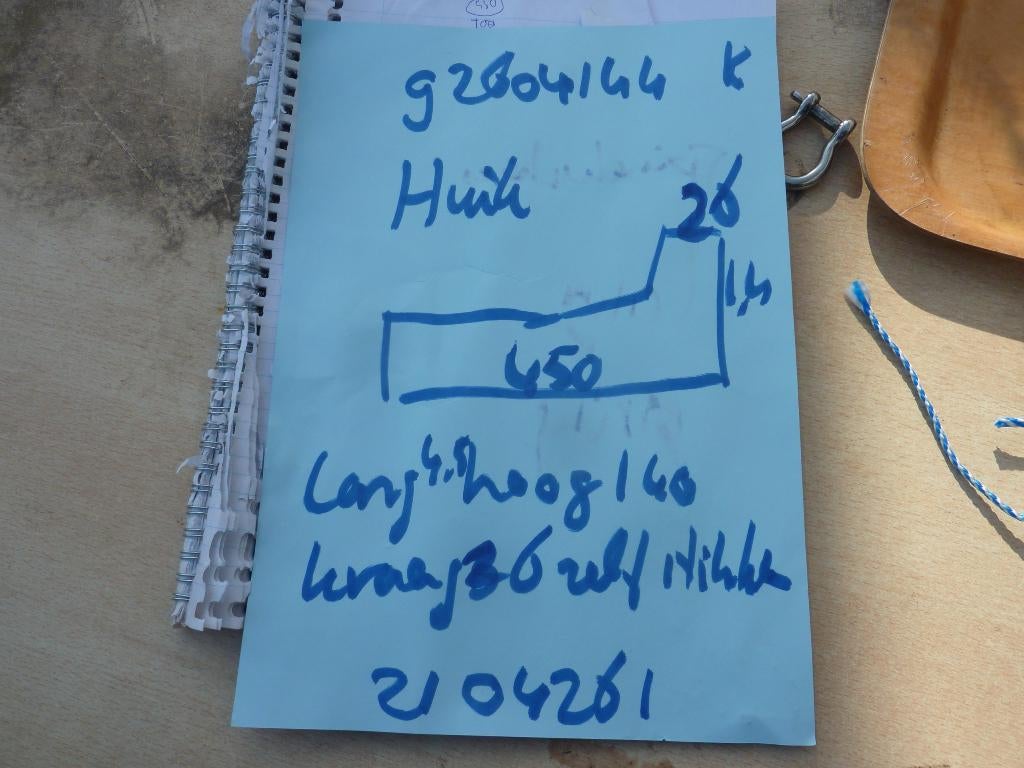 450
700
g2604144 K
Huik
26
1,4
450
Lang 4.5 hoog 140
kraag 36 zelf stikke
2104261